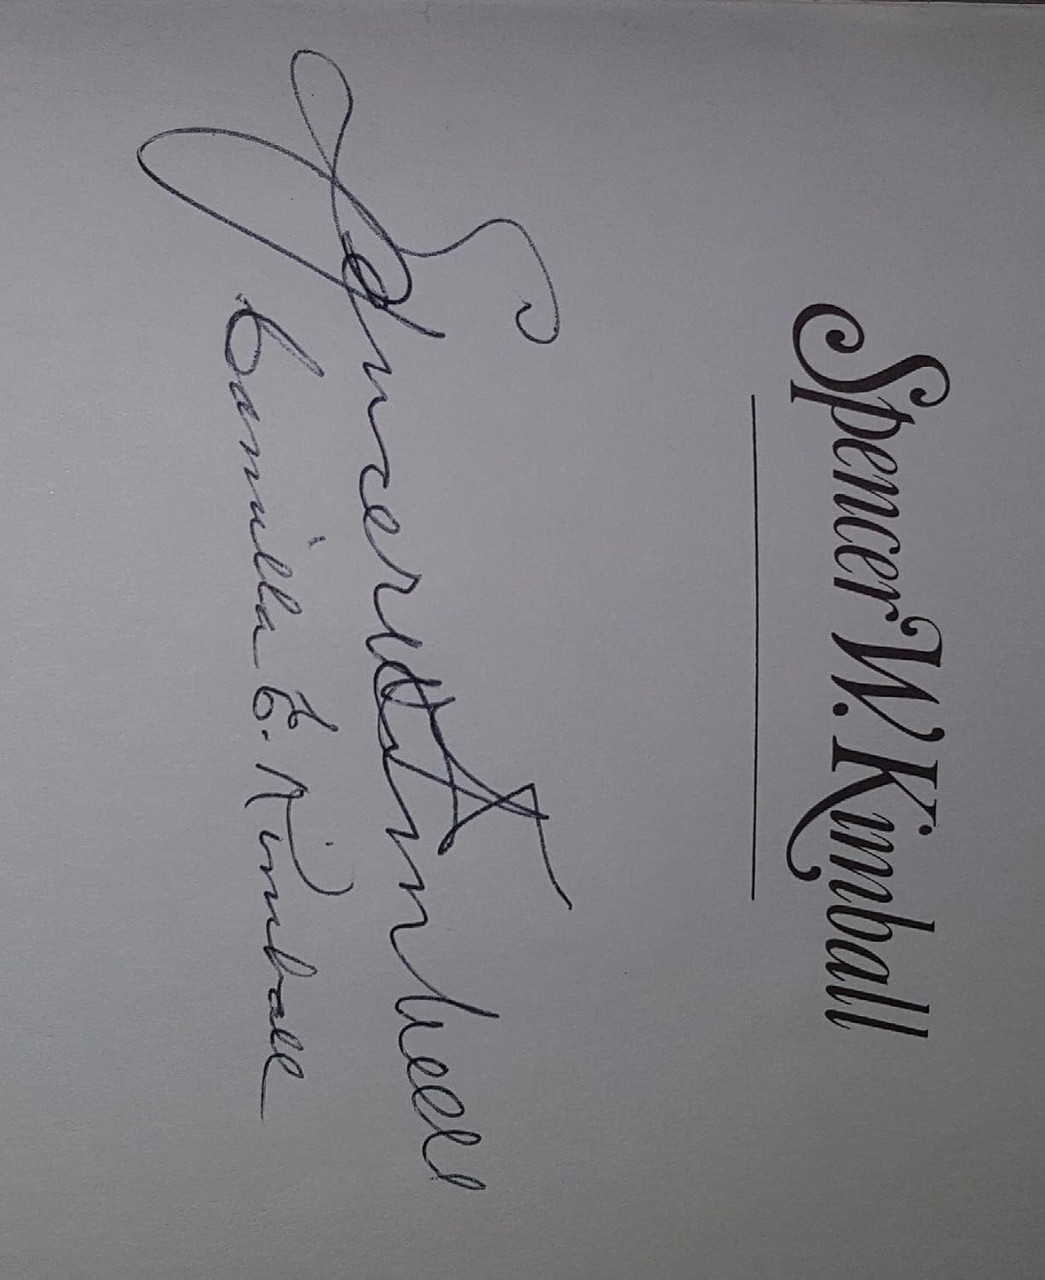 Spencer W. Kimball
Spencer W Kimball
Camilla E. Kimball